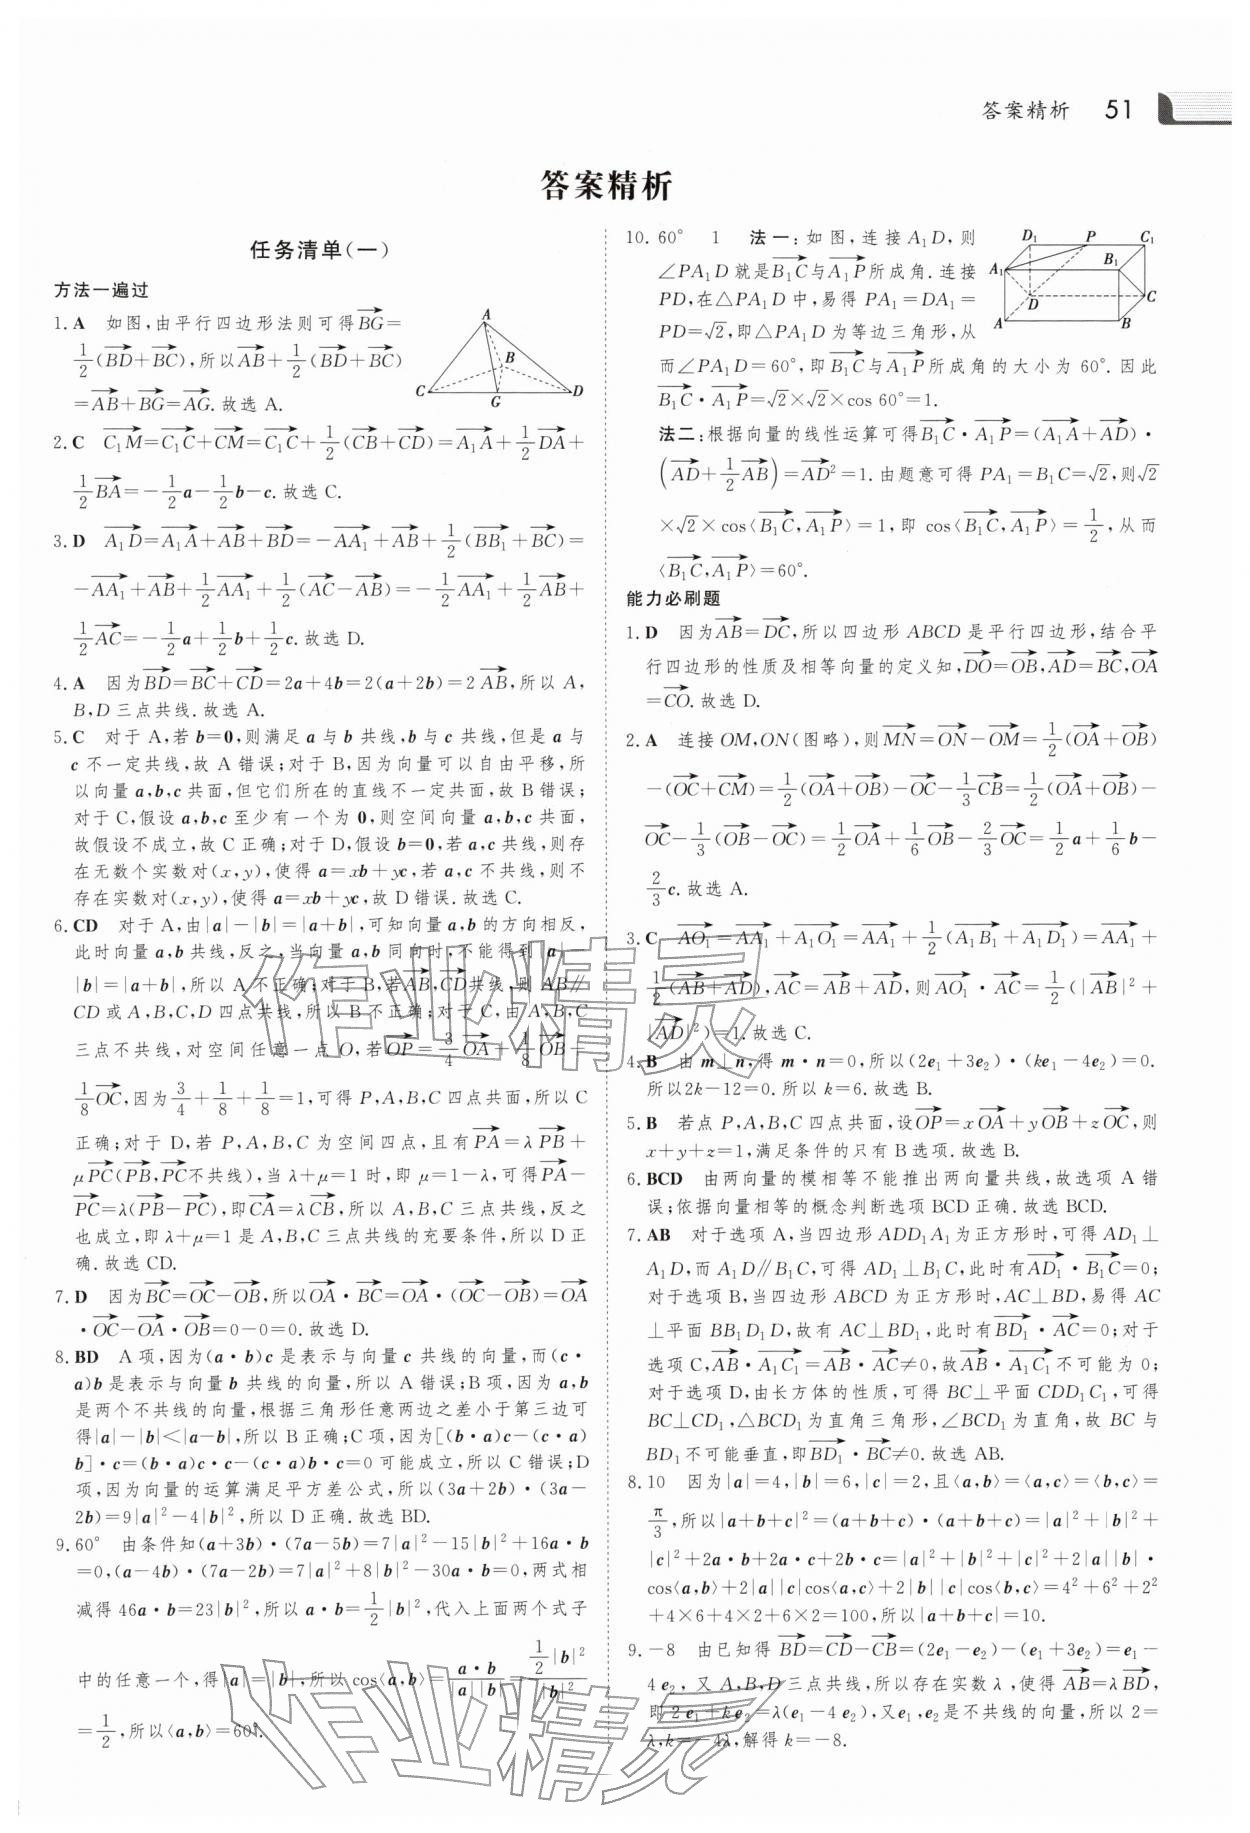 答案精析 51
答案精析
任务清单(一)
方法一遍过
1. A 如图,由平行四边形法则可得$\overrightarrow{BG}$=
$\frac{1}{2}(\overrightarrow{BD}+\overrightarrow{BC})$,所以$\overrightarrow{AB}+\frac{1}{2}(\overrightarrow{BD}+\overrightarrow{BC})$
=$\overrightarrow{AB}+\overrightarrow{BG}=\overrightarrow{AG}$.故选 A.
A
B
C
G
D
2. C $\overrightarrow{C_1M}=\overrightarrow{C_1C}+\overrightarrow{CM}=\overrightarrow{C_1C}+\frac{1}{2}(\overrightarrow{CB}+\overrightarrow{CD})=\overrightarrow{A_1A}+\frac{1}{2}\overrightarrow{DA}+$
$\frac{1}{2}\overrightarrow{BA}=-\frac{1}{2}a-\frac{1}{2}b-c$.故选 C.
3. D $\overrightarrow{A_1D}=\overrightarrow{A_1A}+\overrightarrow{AB}+\overrightarrow{BD}=-\overrightarrow{AA_1}+\overrightarrow{AB}+\frac{1}{2}(\overrightarrow{BB_1}+\overrightarrow{BC})=$
$-\overrightarrow{AA_1}+\overrightarrow{AB}+\frac{1}{2}\overrightarrow{AA_1}+\frac{1}{2}(\overrightarrow{AC}-\overrightarrow{AB})=-\frac{1}{2}\overrightarrow{AA_1}+\frac{1}{2}\overrightarrow{AB}+$
$\frac{1}{2}\overrightarrow{AC}=-\frac{1}{2}a+\frac{1}{2}b+\frac{1}{2}c$.故选 D.
4. A 因为$\overrightarrow{BD}=\overrightarrow{BC}+\overrightarrow{CD}=2a+4b=2(a+2b)=2\overrightarrow{AB}$,所以 A,
B,D 三点共线.故选 A.
5. C 对于 A,若 b=0,则满足 a 与 b 共线,b 与 c 共线,但是 a 与
c 不一定共线,故 A 错误;对于 B,因为向量可以自由平移,所
以向量 a,b,c 共面,但它们所在的直线不一定共面,故 B 错误;
对于 C,假设 a,b,c 至少有一个为 0,则空间向量 a,b,c 共面,
故假设不成立,故 C 正确;对于 D,假设 b=0,若 a,c 共线,则存
在无数个实数对(x,y),使得 a=xb+yc,若 a,c 不共线,则不
存在实数对(x,y),使得 a=xb+yc,故 D 错误.故选 C.
6. CD 对于 A,由|a|-|b|=|a+b|,可知向量 a,b 的方向相反,
此时向量 a,b 共线,反之,当向量 a,b 同向时,不能得到|a|-
|b|=|a+b|,所以 A 不正确;对于 B,若$\overrightarrow{AB},\overrightarrow{CD}$共线,则 AB∥
CD 或 A,B,C,D 四点共线,所以 B 不正确;对于 C,由 A,B,C
三点不共线,对空间任意一点 O,若$\overrightarrow{OP}=\frac{3}{4}\overrightarrow{OA}+\frac{1}{8}\overrightarrow{OB}+$
$\frac{1}{8}\overrightarrow{OC}$,因为$\frac{3}{4}+\frac{1}{8}+\frac{1}{8}=1$,可得 P,A,B,C 四点共面,所以 C
正确;对于 D,若 P,A,B,C 为空间四点,且有$\overrightarrow{PA}=λ\overrightarrow{PB}+$
$μ\overrightarrow{PC}(\overrightarrow{PB},\overrightarrow{PC}$不共线),当 λ+μ=1 时,即 μ=1-λ,可得$\overrightarrow{PA}-$
$\overrightarrow{PC}=λ(\overrightarrow{PB}-\overrightarrow{PC})$,即$\overrightarrow{CA}=λ\overrightarrow{CB}$,所以 A,B,C 三点共线,反之
也成立,即 λ+μ=1 是 A,B,C 三点共线的充要条件,所以 D 正
确.故选 CD.
7. D 因为$\overrightarrow{BC}=\overrightarrow{OC}-\overrightarrow{OB}$,所以$\overrightarrow{OA}·\overrightarrow{BC}=\overrightarrow{OA}·(\overrightarrow{OC}-\overrightarrow{OB})=\overrightarrow{OA}$
$·\overrightarrow{OC}-\overrightarrow{OA}·\overrightarrow{OB}=0-0=0$.故选 D.
8. BD A 项,因为(a·b)c 是表示与向量 c 共线的向量,而(c·
a)b 是表示与向量 b 共线的向量,所以 A 错误;B 项,因为 a,b
是两个不共线的向量,根据三角形任意两边之差小于第三边可
得|a|-|b|<|a-b|,所以 B 正确;C 项,因为[(b·a)c-(c·a)
b]·c=(b·a)c·c-(c·a)b·c=0 可能成立,所以 C 错误;D
项,因为向量的运算满足平方差公式,所以(3a+2b)·(3a-
2b)=9|a|²-4|b|²,所以 D 正确.故选 BD.
9. 60° 由条件知(a+3b)·(7a-5b)=7|a|²-15|b|²+16a·b
=0,(a-4b)·(7a-2b)=7|a|²+8|b|²-30a·b=0,两式相
减得 46a·b=23|b|²,所以 a·b=$\frac{1}{2}$|b|²,代入上面两个式子
中的任意一个,得|a|=|b|,所以 cos⟨a,b⟩=$\frac{a·b}{|a||b|}=\frac{\frac{1}{2}|b|^2}{|b|^2}$
=$\frac{1}{2}$,所以⟨a,b⟩=60°.
10. 60° 1 法一:如图,连接 A₁D,则
∠PA₁D 就是$\overrightarrow{B_1C}$与$\overrightarrow{A_1P}$所成角.连接
PD,在△PA₁D 中,易得 PA₁=DA₁=
PD=√2,即△PA₁D 为等边三角形,从
而∠PA₁D=60°,即$\overrightarrow{B_1C}$与$\overrightarrow{A_1P}$所成角的大小为 60°.因此
$\overrightarrow{B_1C}·\overrightarrow{A_1P}$=√2×√2×cos 60°=1.
D₁ P C₁
A₁ B₁
D C
A B
法二:根据向量的线性运算可得$\overrightarrow{B_1C}·\overrightarrow{A_1P}=(\overrightarrow{A_1A}+\overrightarrow{AD})·$
$\left(\overrightarrow{AD}+\frac{1}{2}\overrightarrow{AB}\right)=\overrightarrow{AD}^2=1$.由题意可得 PA₁=B₁C=√2,则√2
×√2×cos⟨$\overrightarrow{B_1C},\overrightarrow{A_1P}$⟩=1,即 cos⟨$\overrightarrow{B_1C},\overrightarrow{A_1P}$⟩=$\frac{1}{2}$,从而
⟨$\overrightarrow{B_1C},\overrightarrow{A_1P}$⟩=60°.
能力必刷题
1. D 因为$\overrightarrow{AB}=\overrightarrow{DC}$,所以四边形 ABCD 是平行四边形,结合平
行四边形的性质及相等向量的定义知,$\overrightarrow{DO}=\overrightarrow{OB},\overrightarrow{AD}=\overrightarrow{BC},\overrightarrow{OA}$
=$\overrightarrow{CO}$.故选 D.
2. A 连接 OM,ON(图略),则$\overrightarrow{MN}=\overrightarrow{ON}-\overrightarrow{OM}=\frac{1}{2}(\overrightarrow{OA}+\overrightarrow{OB})$
$-(\overrightarrow{OC}+\overrightarrow{CM})=\frac{1}{2}(\overrightarrow{OA}+\overrightarrow{OB})-\overrightarrow{OC}-\frac{1}{3}\overrightarrow{CB}=\frac{1}{2}(\overrightarrow{OA}+\overrightarrow{OB})-$
$\overrightarrow{OC}-\frac{1}{3}(\overrightarrow{OB}-\overrightarrow{OC})=\frac{1}{2}\overrightarrow{OA}+\frac{1}{6}\overrightarrow{OB}-\frac{2}{3}\overrightarrow{OC}=\frac{1}{2}a+\frac{1}{6}b-$
$\frac{2}{3}c$.故选 A.
3. C $\overrightarrow{AO_1}=\overrightarrow{AA_1}+\overrightarrow{A_1O_1}=\overrightarrow{AA_1}+\frac{1}{2}(\overrightarrow{A_1B_1}+\overrightarrow{A_1D_1})=\overrightarrow{AA_1}+$
$\frac{1}{2}(\overrightarrow{AB}+\overrightarrow{AD}),\overrightarrow{AC}=\overrightarrow{AB}+\overrightarrow{AD}$,则$\overrightarrow{AO_1}·\overrightarrow{AC}=\frac{1}{2}(|\overrightarrow{AB}|^2+$
$|\overrightarrow{AD}|^2)=1$.故选 C.
4. B 由 m⊥n,得 m·n=0,所以(2e₁+3e₂)·(ke₁-4e₂)=0.
所以2k-12=0.所以 k=6.故选 B.
5. B 若点 P,A,B,C 四点共面,设$\overrightarrow{OP}=x\overrightarrow{OA}+y\overrightarrow{OB}+z\overrightarrow{OC}$,则
x+y+z=1,满足条件的只有 B 选项.故选 B.
6. BCD 由两向量的模相等不能推出两向量共线,故选项 A 错
误;依据向量相等的概念判断选项 BCD 正确.故选 BCD.
7. AB 对于选项 A,当四边形 ADD₁A₁为正方形时,可得 AD₁⊥
A₁D,而 A₁D∥B₁C,可得 AD₁⊥B₁C,此时有$\overrightarrow{AD_1}·\overrightarrow{B_1C}=0$;
对于选项 B,当四边形 ABCD 为正方形时,AC⊥BD,易得 AC
⊥平面 BB₁D₁D,故有 AC⊥BD₁,此时有$\overrightarrow{BD_1}·\overrightarrow{AC}=0$;对于
选项 C,$\overrightarrow{AB}·\overrightarrow{A_1C_1}=\overrightarrow{AB}·\overrightarrow{AC}≠0$,故$\overrightarrow{AB}·\overrightarrow{A_1C_1}$不可能为 0;
对于选项 D,由长方体的性质,可得 BC⊥平面 CDD₁C₁,可得
BC⊥CD₁,△BCD₁为直角三角形,∠BCD₁为直角,故 BC 与
BD₁不可能垂直,即$\overrightarrow{BD_1}·\overrightarrow{BC}≠0$.故选 AB.
8. 10 因为|a|=4,|b|=6,|c|=2,且⟨a,b⟩=⟨a,c⟩=⟨b,c⟩=
$\frac{π}{3}$,所以|a+b+c|²=(a+b+c)·(a+b+c)=|a|²+|b|²+
|c|²+2a·b+2a·c+2b·c=|a|²+|b|²+|c|²+2|a||b|·
cos⟨a,b⟩+2|a||c|cos⟨a,c⟩+2|b||c|cos⟨b,c⟩=4²+6²+2²
+4×6+4×2+6×2=100,所以|a+b+c|=10.
9. -8 由已知得$\overrightarrow{BD}=\overrightarrow{CD}-\overrightarrow{CB}$=(2e₁-e₂)-(e₁+3e₂)=e₁-
4e₂,又 A,B,D 三点共线,所以存在实数 λ,使得$\overrightarrow{AB}=λ\overrightarrow{BD}$,
即 2e₁+ke₂=λ(e₁-4e₂),又e₁,e₂是不共线的向量,所以 2=
λ,k=-4λ,解得 k=-8.
作业精灵
作业精灵